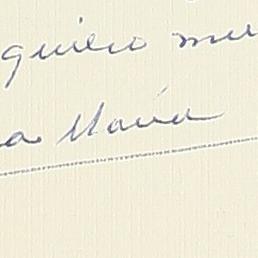 quiero mu
a María